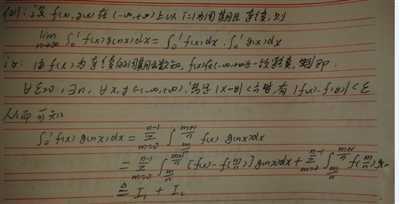 例1: 设 f(x), g(x) 在 (-∞,+∞) 上以 T=1 为周期且连续, 则
lim n→∞ ∫₀¹ f(x)g(nx)dx = ∫₀¹ f(x)dx · ∫₀¹ g(x)dx
证: 由 f(x) 为连续的周期函数知, f(x)在(-∞,+∞)一致连续, 即
∀ε>0, ∃n, ∀x,y∈(-∞,+∞), 当 |x-y|<1/n 时, 有 |f(x)-f(y)|<ε
从而可知
∫₀¹ f(x)g(nx)dx = Σ_{m=0}^{n-1} ∫_{m/n}^{(m+1)/n} f(x)·g(nx)dx
= Σ_{m=0}^{n-1} ∫_{m/n}^{(m+1)/n} [f(x)-f(m/n)]g(nx)dx + Σ^{n-1} ∫_{m/n}^{(m+1)/n} f(m/n)g
≜ I₁ + I₂